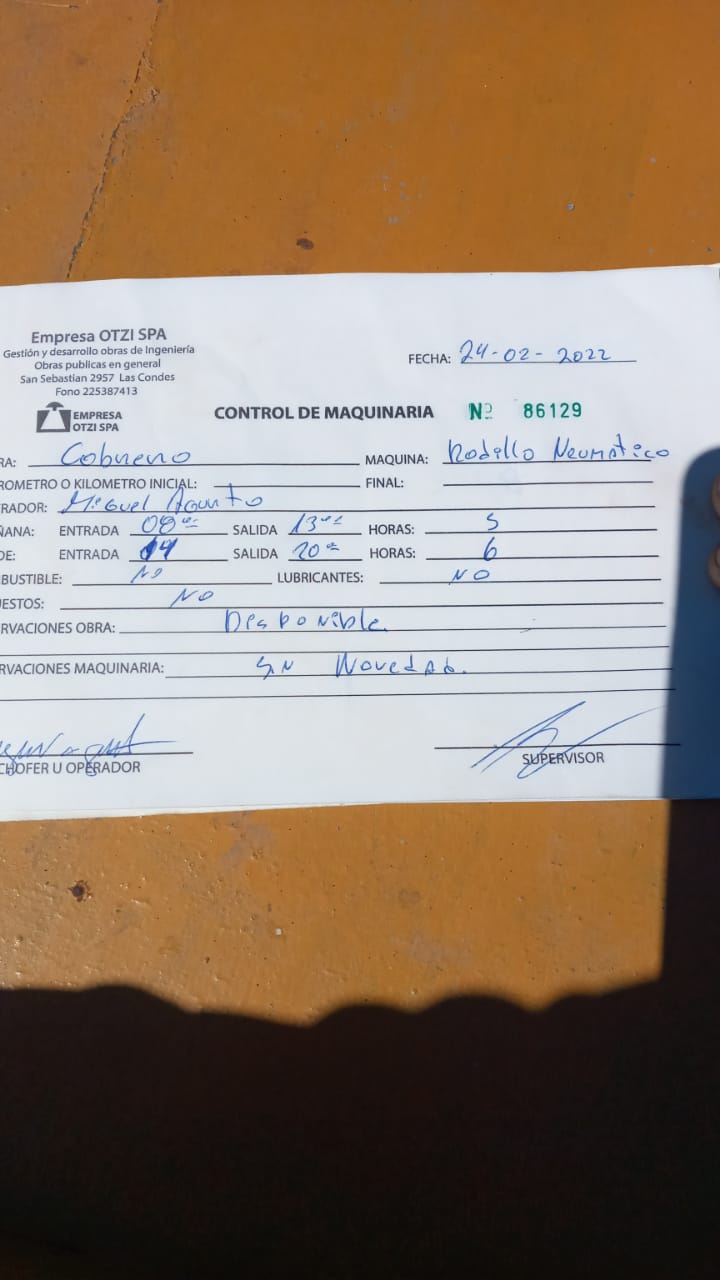 Empresa OTZI SPA
Gestión y desarrollo obras de Ingeniería
Obras publicas en general
San Sebastian 2957 Las Condes
Fono 225387413
FECHA: 24-02-2022
EMPRESA
OTZI SPA
CONTROL DE MAQUINARIA Nº 86129
RA: MAQUINA: Rodillo Neumático
ROMETRO O KILOMETRO INICIAL: FINAL:
RADOR: Miguel
ÑANA: ENTRADA 08 SALIDA 13 HORAS: 5
DE: ENTRADA 14 SALIDA 20 HORAS: 6
BUSTIBLE: NO LUBRICANTES: NO
ESTOS: NO
RVACIONES OBRA: Disponible
RVACIONES MAQUINARIA: Sin Novedad.
CHOFER U OPERADOR SUPERVISOR